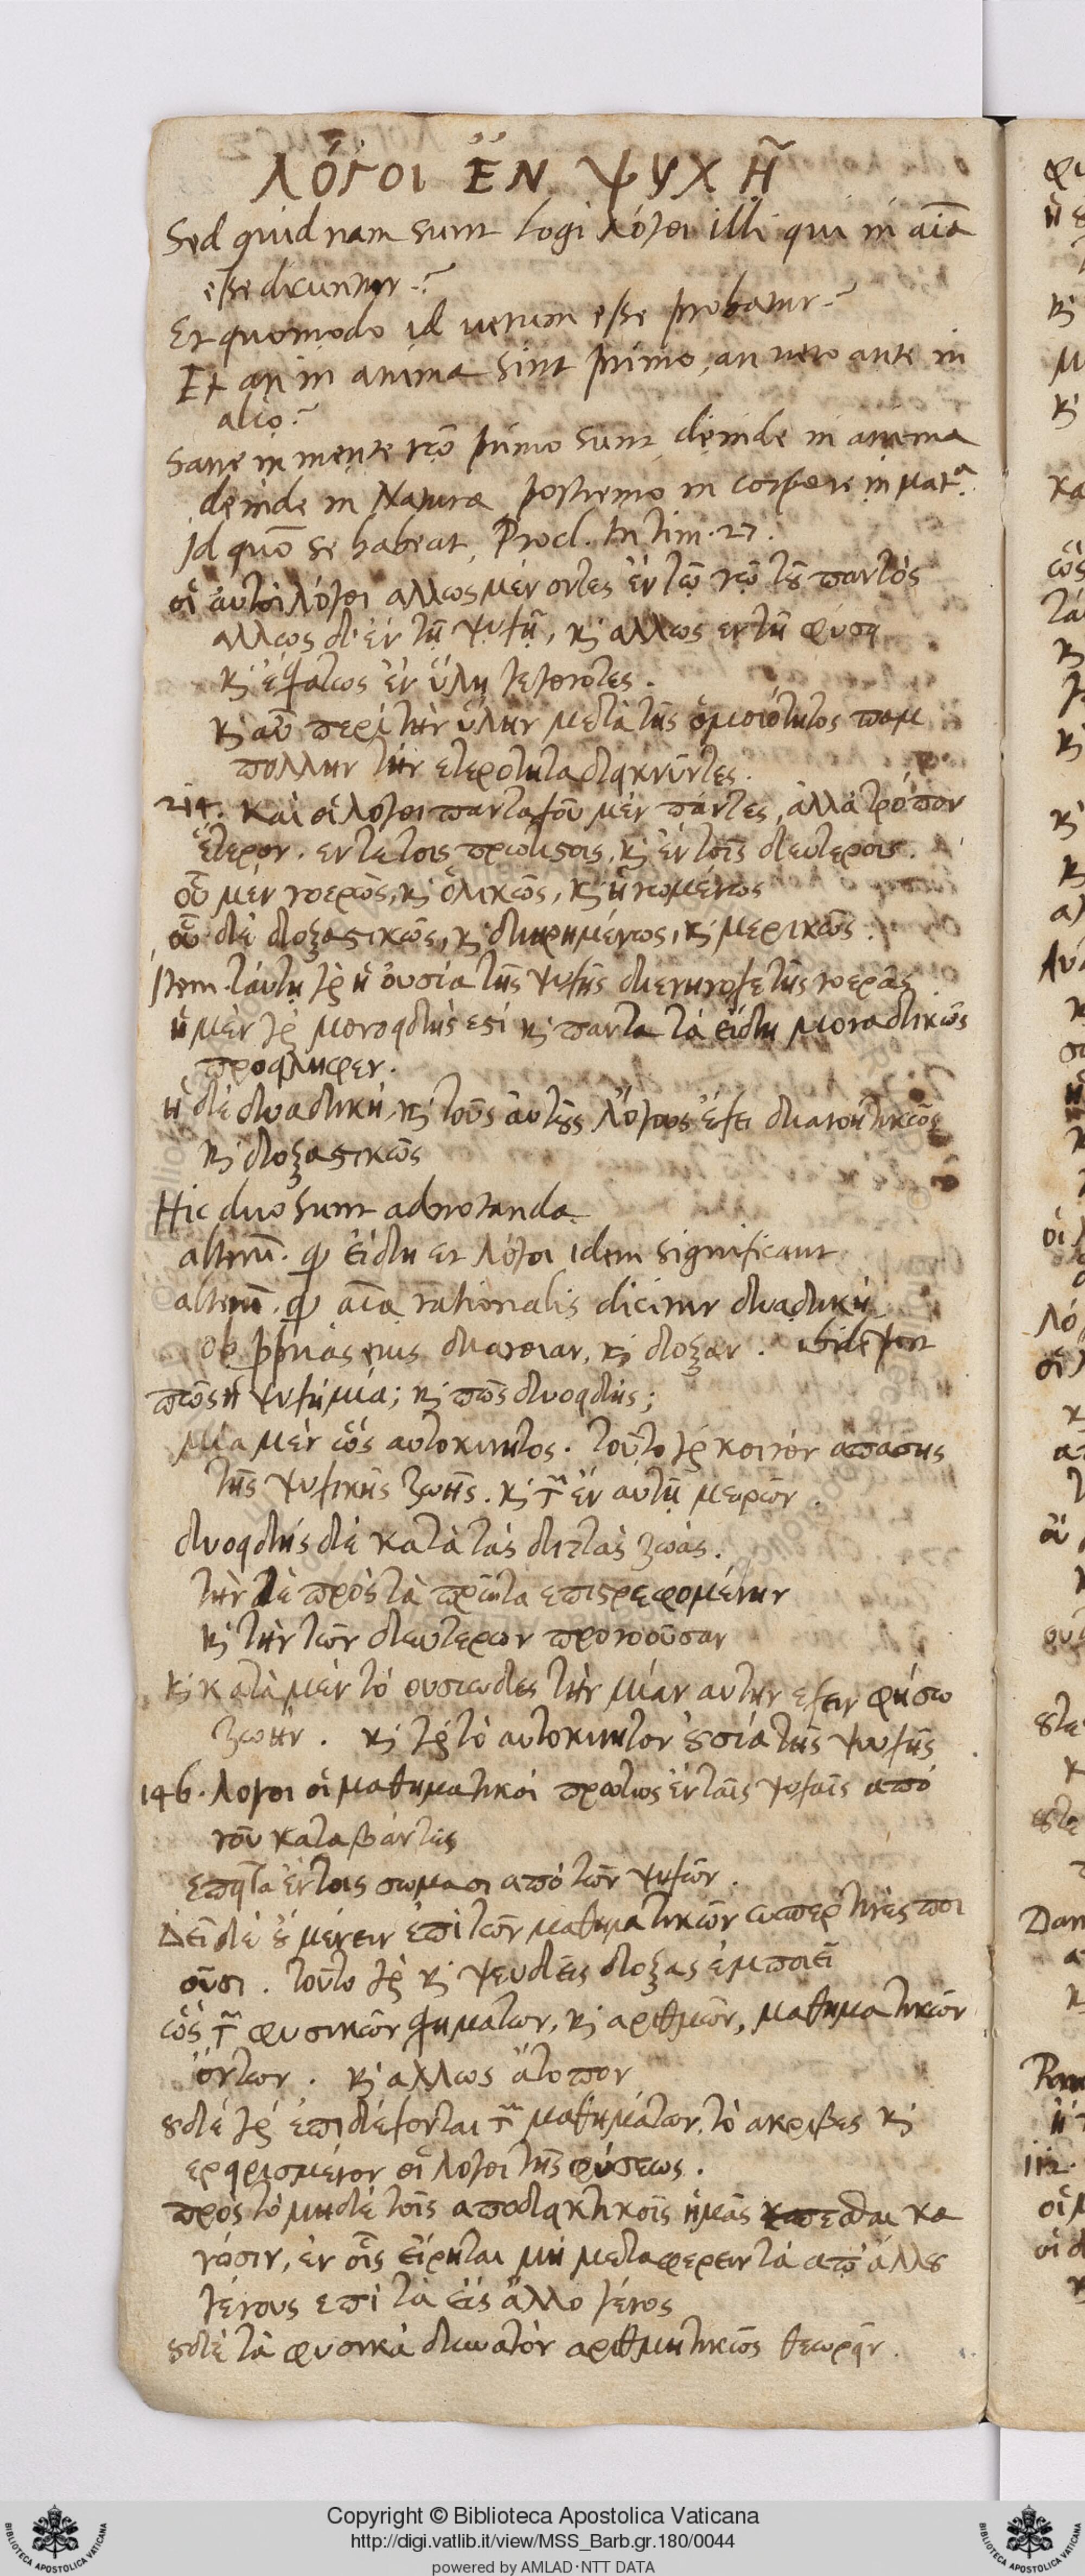 ΛΌΓΟΙ ἘΝ ΨΥΧΗ͂
Sed quid nam sunt Logi λόγοι illi qui in aīa
esse dicuntur?
Et quomodo id uerum esse probatur?
Et an in anima sint primo, an uero ante in
alio?
Sane in mente primo sunt deinde in anima
deinde in Natura postremo in corpore in mat.ª
Id quō se habeat, Procl. In tim. 27.
οἱ ἀυτοὶ λόγοι αλλως μέν οντες ἐν τῶ νῶ τȣ παντός
αλλως δ' ἐν τῆ ψυχῆ, κ̀ αλλως εν τῆ φύσει
κ̀ ἐσχατως ἐν ὕλη γεγονοτες.
κ̀ αὖ περὶ τὴν ὕλην μετὰ τῆς ὁμοιότητος παμ
πολλην τὴν ετεροτητα δεικνύντες.
214. Καὶ οἱ λογοι πανταχοῦ μέν πάντες, ἀλλὰ τρόπον
ἕτερον. εν τε τοις πρωτιςοις, κ̀ ἐν τοῖς δευτεροις.
οὗ μέν νοερῶς, κ̀ ὁλικῶς, κ̀ ἡνωμένως
οὗ δὲ δοξαςικῶς, κ̀ διῃρημένως, κ̀ μερικῶς.
Item. ταύτη γὰρ ἡ ὀυσία τῆς ψυχῆς διενηνοχε τῆς νοερᾶς
ἡ μὲν γὰρ μονοειδὴς εςί κ̀ παντα τὰ εἴδη μοναδικῶς
προσείληφεν.
ἡ δὲ δυαδική, κ̀ τοὺς ἀυτȣς λόγους ἔχει διανοητικῶς
κ̀ δοξαςικῶς
Hic duo sunt adnotanda
alterū. ꝙ εἴδη et λόγοι idem significant
alterū. ꝙ aīa rationalis dicitur δυαδική
ob eius διανοιαν, κ̀ δοξαν.
πῶς ἡ ψυχή μία; κ̀ πῶς δυοειδής;
μία μὲν ὡς αυτοκινητος. τοῦτο γὰρ κοινόν απασης
τῆς ψυχικῆς ζωῆς. κ̀ τ῀ ἐν αυτῆ μερῶν.
δυοειδὴς δὲ κατὰ τὰς διττὰς ζωάς.
τὴν τὲ πρὸς τὰ πρῶτα επιςρεφομένην
κ̀ τὴν τῶν δευτερων προνοοῦσαν
κ̀ κατὰ μὲν τὸ ουσιωδες τὴν μίαν αυτην εχειν φήσω
ζωήν. κ̀ γὰρ τὸ αυτοκινητον ȣσία τῆς ψυχῆς
146. Λογοι οἱ μαθηματικοὶ πρωτως ἐν ταῖς ψυχαῖς απὸ
νοῦ καταβάντες
επειτα ἐν τοις σωμασι απὸ τῶν ψυχῶν.
Δεῖ δὲ ȣ μένειν ἐπὶ τῶν μαθηματικῶν ωσπερ τινὲς ποι
οῦσι. τοῦτο γὰρ κ̀ ψευδεῖς δοξας ἐμποιεῖ
ὡς τ῀ φυσικῶν σχηματων, κ̀ αριθμῶν, μαθηματικῶν
ὄντων. κ̀ αλλως ἄτοπον
ȣδὲ γὰρ ἐπιδέχονται τ῀ μαθημάτων τὸ ακριβες κ̀
οἱ λογοι τῆς φύσεως.
πρὸς τὸ μηδὲ τοῖς αποδεικτικοῖς ἡμᾶς επεσθαι κα
νόσιν, ἐν οἷς εἴρηται μὴ μεταφερειν τὰ απ' ἄλλȣ
γένους επὶ τὰ εἰς ἄλλο γένος
ȣδὲ τὰ φυσικὰ δυνατὸν αριθμητικῶς θεωρεῖν.
Copyright © Biblioteca Apostolica Vaticana
http://digi.vatlib.it/view/MSS_Barb.gr.180/0044
powered by AMLAD·NTT DATA